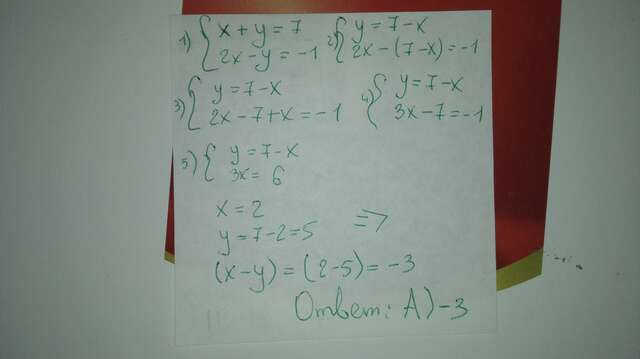 1) { x + y = 7
2x - y = -1
2) { y = 7 - x
2x - (7 - x) = -1
3) { y = 7 - x
2x - 7 + x = -1
4) { y = 7 - x
3x - 7 = -1
5) { y = 7 - x
3x = 6
x = 2
y = 7 - 2 = 5 =>
(x - y) = (2 - 5) = -3
Ответ: А) -3